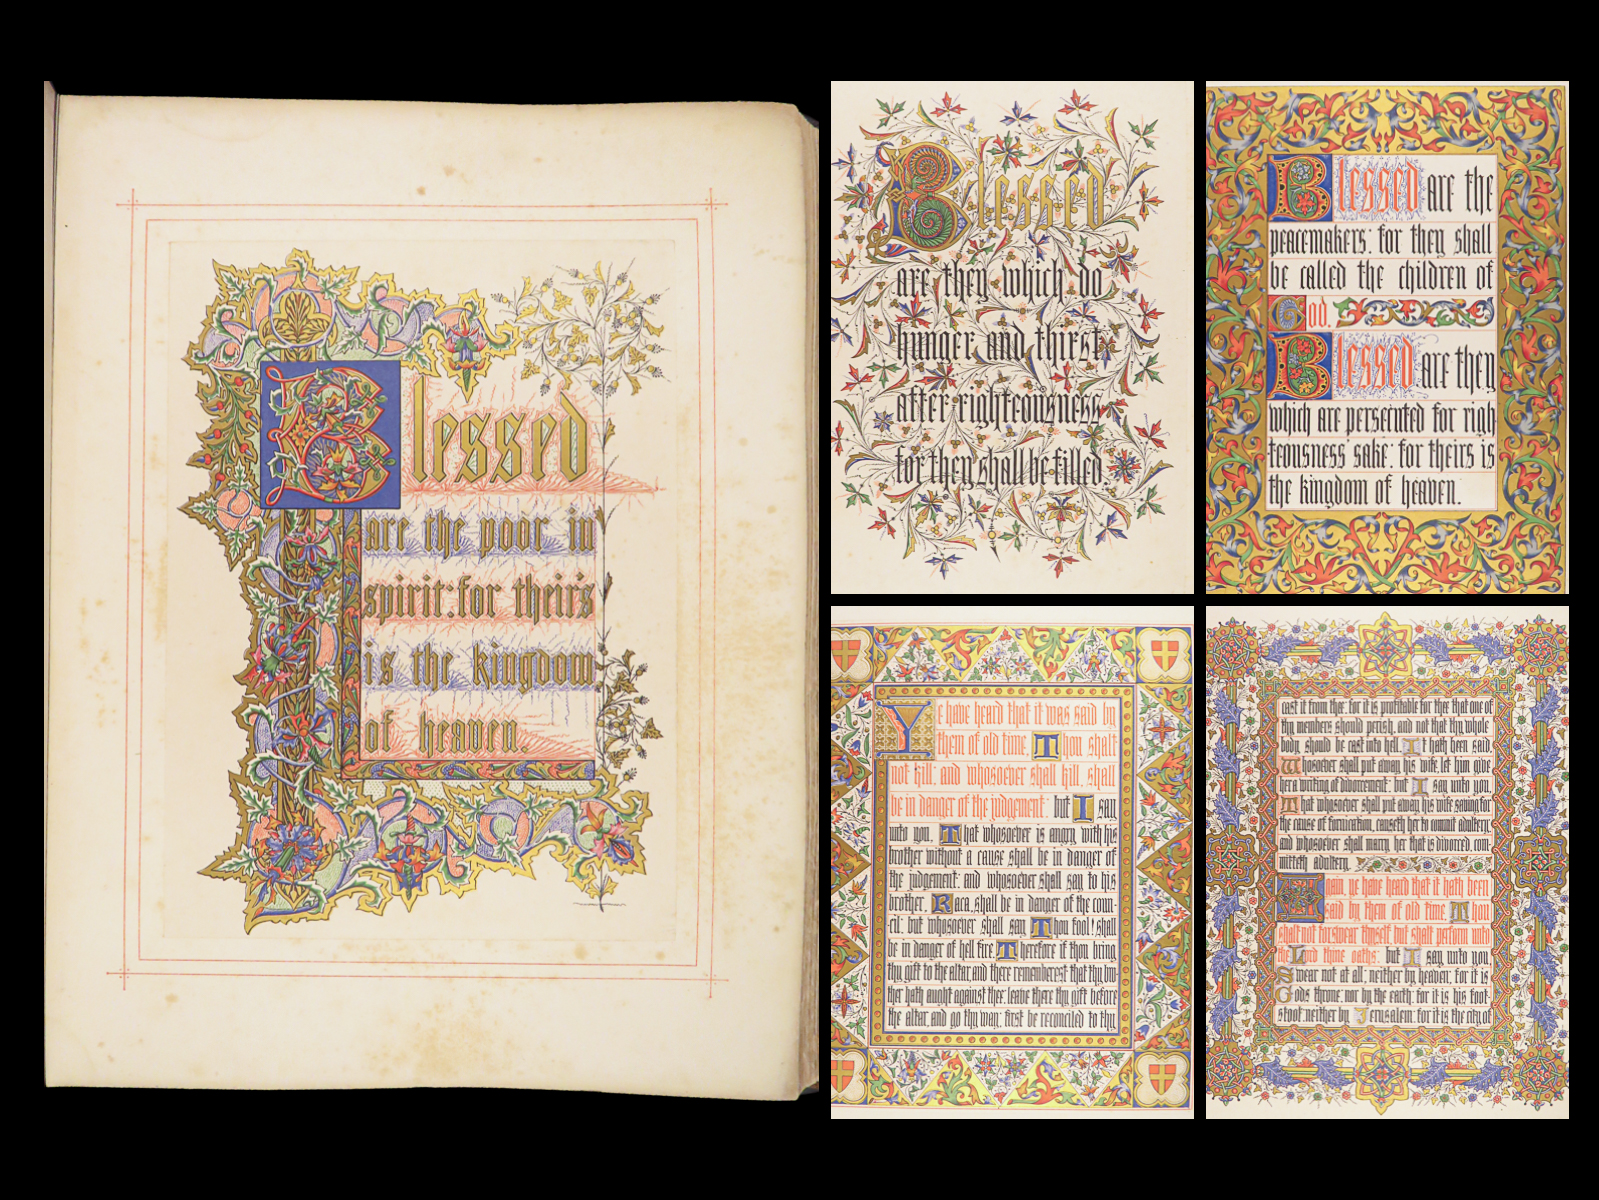 Blessed
are the poor in
spirit: for their's
is the kingdom
of heaven.
Blessed
are they which do
hunger and thirst
after righteousness
for they shall be filled
Blessed are the
peacemakers: for they shall
be called the children of
God.
Blessed are they
which are persecuted for righ
teousness sake: for theirs is
the kingdom of heaven.
Ye have heard that it was said by
them of old time, Thou shalt
not kill; and whosoever shall kill, shall
be in danger of the judgement: but I say
unto you, That whosoever is angry with his
brother without a cause shall be in danger of
the judgement: and whosoever shall say to his
brother, Raca, shall be in danger of the coun-
cil: but whosoever shall say, Thou fool! shall
be in danger of hell fire. Therefore if thou bring
thy gift to the altar, and there rememberest that thy bro-
ther hath aught against thee: leave there thy gift before
the altar, and go thy way: first be reconciled to thy
cast it from thee: for it is profitable for thee that one of
thy members should perish, and not that thy whole
body should be cast into hell. It hath been said,
Whosoever shall put away his wife, let him give
her a writing of divorcement: but I say unto you,
That whosoever shall put away his wife saving for
the cause of fornication, causeth her to commit adultery:
and whosoever shall marry her that is divorced, com
mitteth adultery.
Again, ye have heard that it hath been
said by them of old time, Thou
shalt not forswear thyself but shalt perform unto
the Lord thine oaths: but I say unto you,
Swear not at all; neither by heaven; for it is
Gods throne: nor by the earth: for it is his foot
stool: neither by Jerusalem: for it is the city of